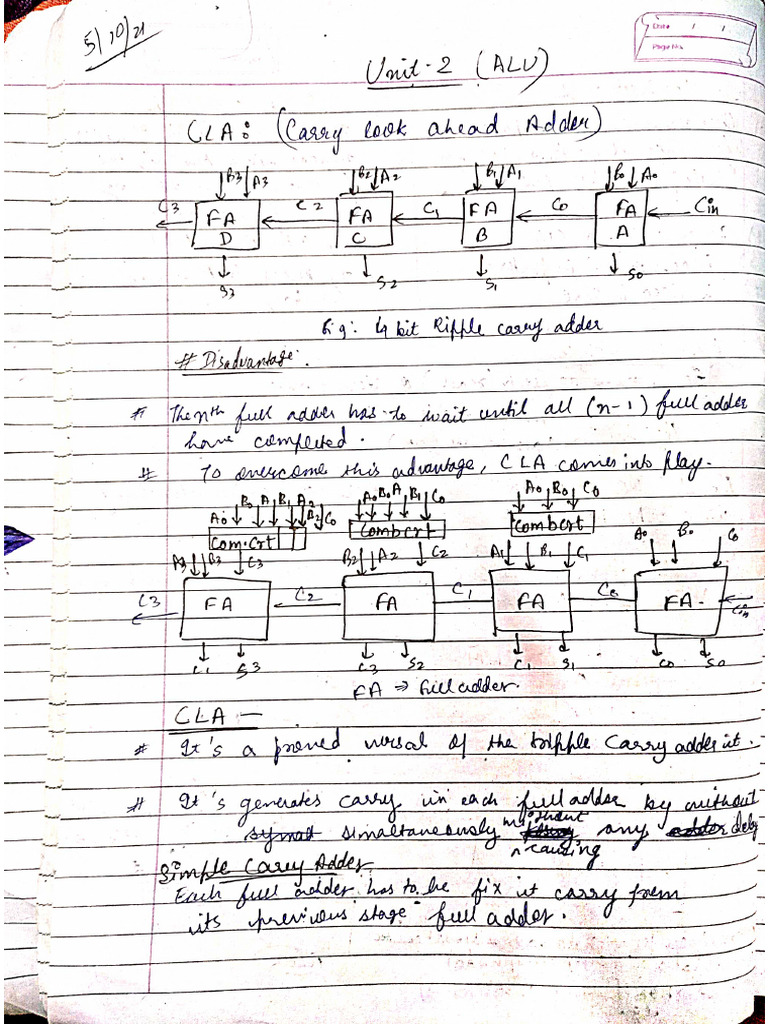 5/10/21
Date / /
Page No.
Unit-2 (ALU)
CLA: (Carry look ahead Adder)
B3 A3 B2 A2 B1 A1 B0 A0
C3 FA D C2 FA C C1 FA B C0 FA A Cin
S3 S2 S1 S0
Fig: 4 bit Ripple carry adder
# Disadvantage:
# The nth full adder has to wait until all (n-1) full adder
have completed.
# To overcome this advantage, CLA comes into play.
A0 B0 A1 B1 A2 B2 C0 A0 B0 A B1 C0 A0 B0 C0
Com.Crt Combcrt Combcrt A0 B0 C0
A3 B3 C3 B2 A2 C2 A1 B1 C1
C3 FA C2 FA C1 FA C0 FA Cin
C1 S3 C3 S2 C1 S1 C0 S0
FA → Fulladder.
CLA –
# It's a proved of the Carry adder it.
# It's generates carry in each full adder by without
simaltaneously without any adder delay
causing
Simple Carry Adder
Each full adder has to be fix it carry from
its previous stage full adder.